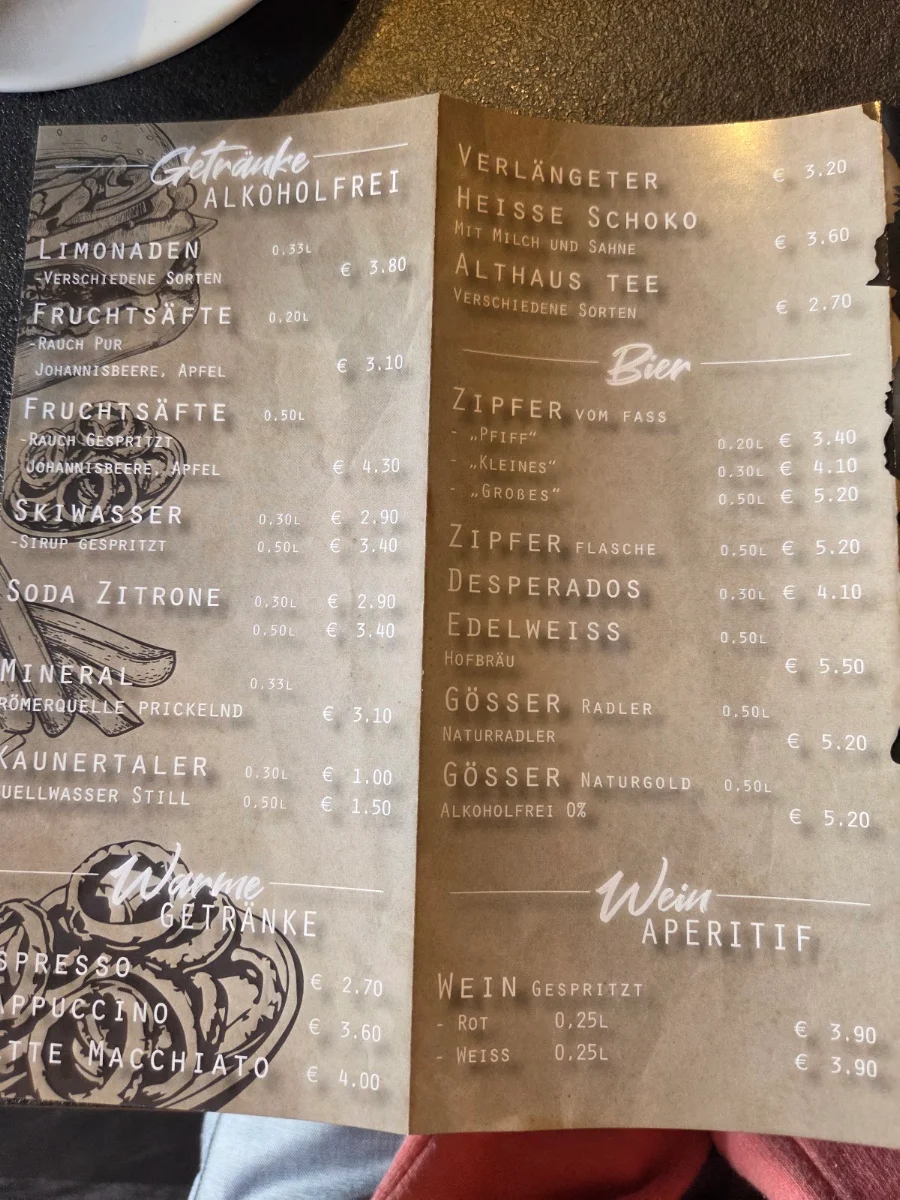 Getränke
ALKOHOLFREI
LIMONADEN 0,33L
-VERSCHIEDENE SORTEN € 3.80
FRUCHTSÄFTE 0,20L
-RAUCH PUR
JOHANNISBEERE, APFEL € 3,10
FRUCHTSÄFTE 0,50L
-RAUCH GESPRITZT
JOHANNISBEERE, APFEL € 4.30
SKIWASSER 0,30L € 2.90
-SIRUP GESPRITZT 0,50L € 3.40
SODA ZITRONE 0,30L € 2.90
0,50L € 3.40
MINERAL 0,33L
RÖMERQUELLE PRICKELND € 3.10
KAUNERTALER 0,30L € 1.00
UELLWASSER STILL 0,50L € 1.50
Warme
GETRÄNKE
SPRESSO € 2.70
APPUCCINO € 3.60
TTE MACCHIATO € 4.00
VERLÄNGETER € 3.20
HEISSE SCHOKO
MIT MILCH UND SAHNE € 3.60
ALTHAUS TEE
VERSCHIEDENE SORTEN € 2.70
Bier
ZIPFER VOM FASS
- „PFIFF“ 0,20L € 3.40
- „KLEINES“ 0,30L € 4.10
- „GROßES“ 0,50L € 5.20
ZIPFER FLASCHE 0,50L € 5.20
DESPERADOS 0,30L € 4.10
EDELWEISS 0,50L
HOFBRÄU € 5.50
GÖSSER RADLER 0,50L
NATURRADLER € 5.20
GÖSSER NATURGOLD 0,50L
ALKOHOLFREI 0% € 5.20
Wein
APERITIF
WEIN GESPRITZT
- ROT 0,25L € 3.90
- WEISS 0,25L € 3.90